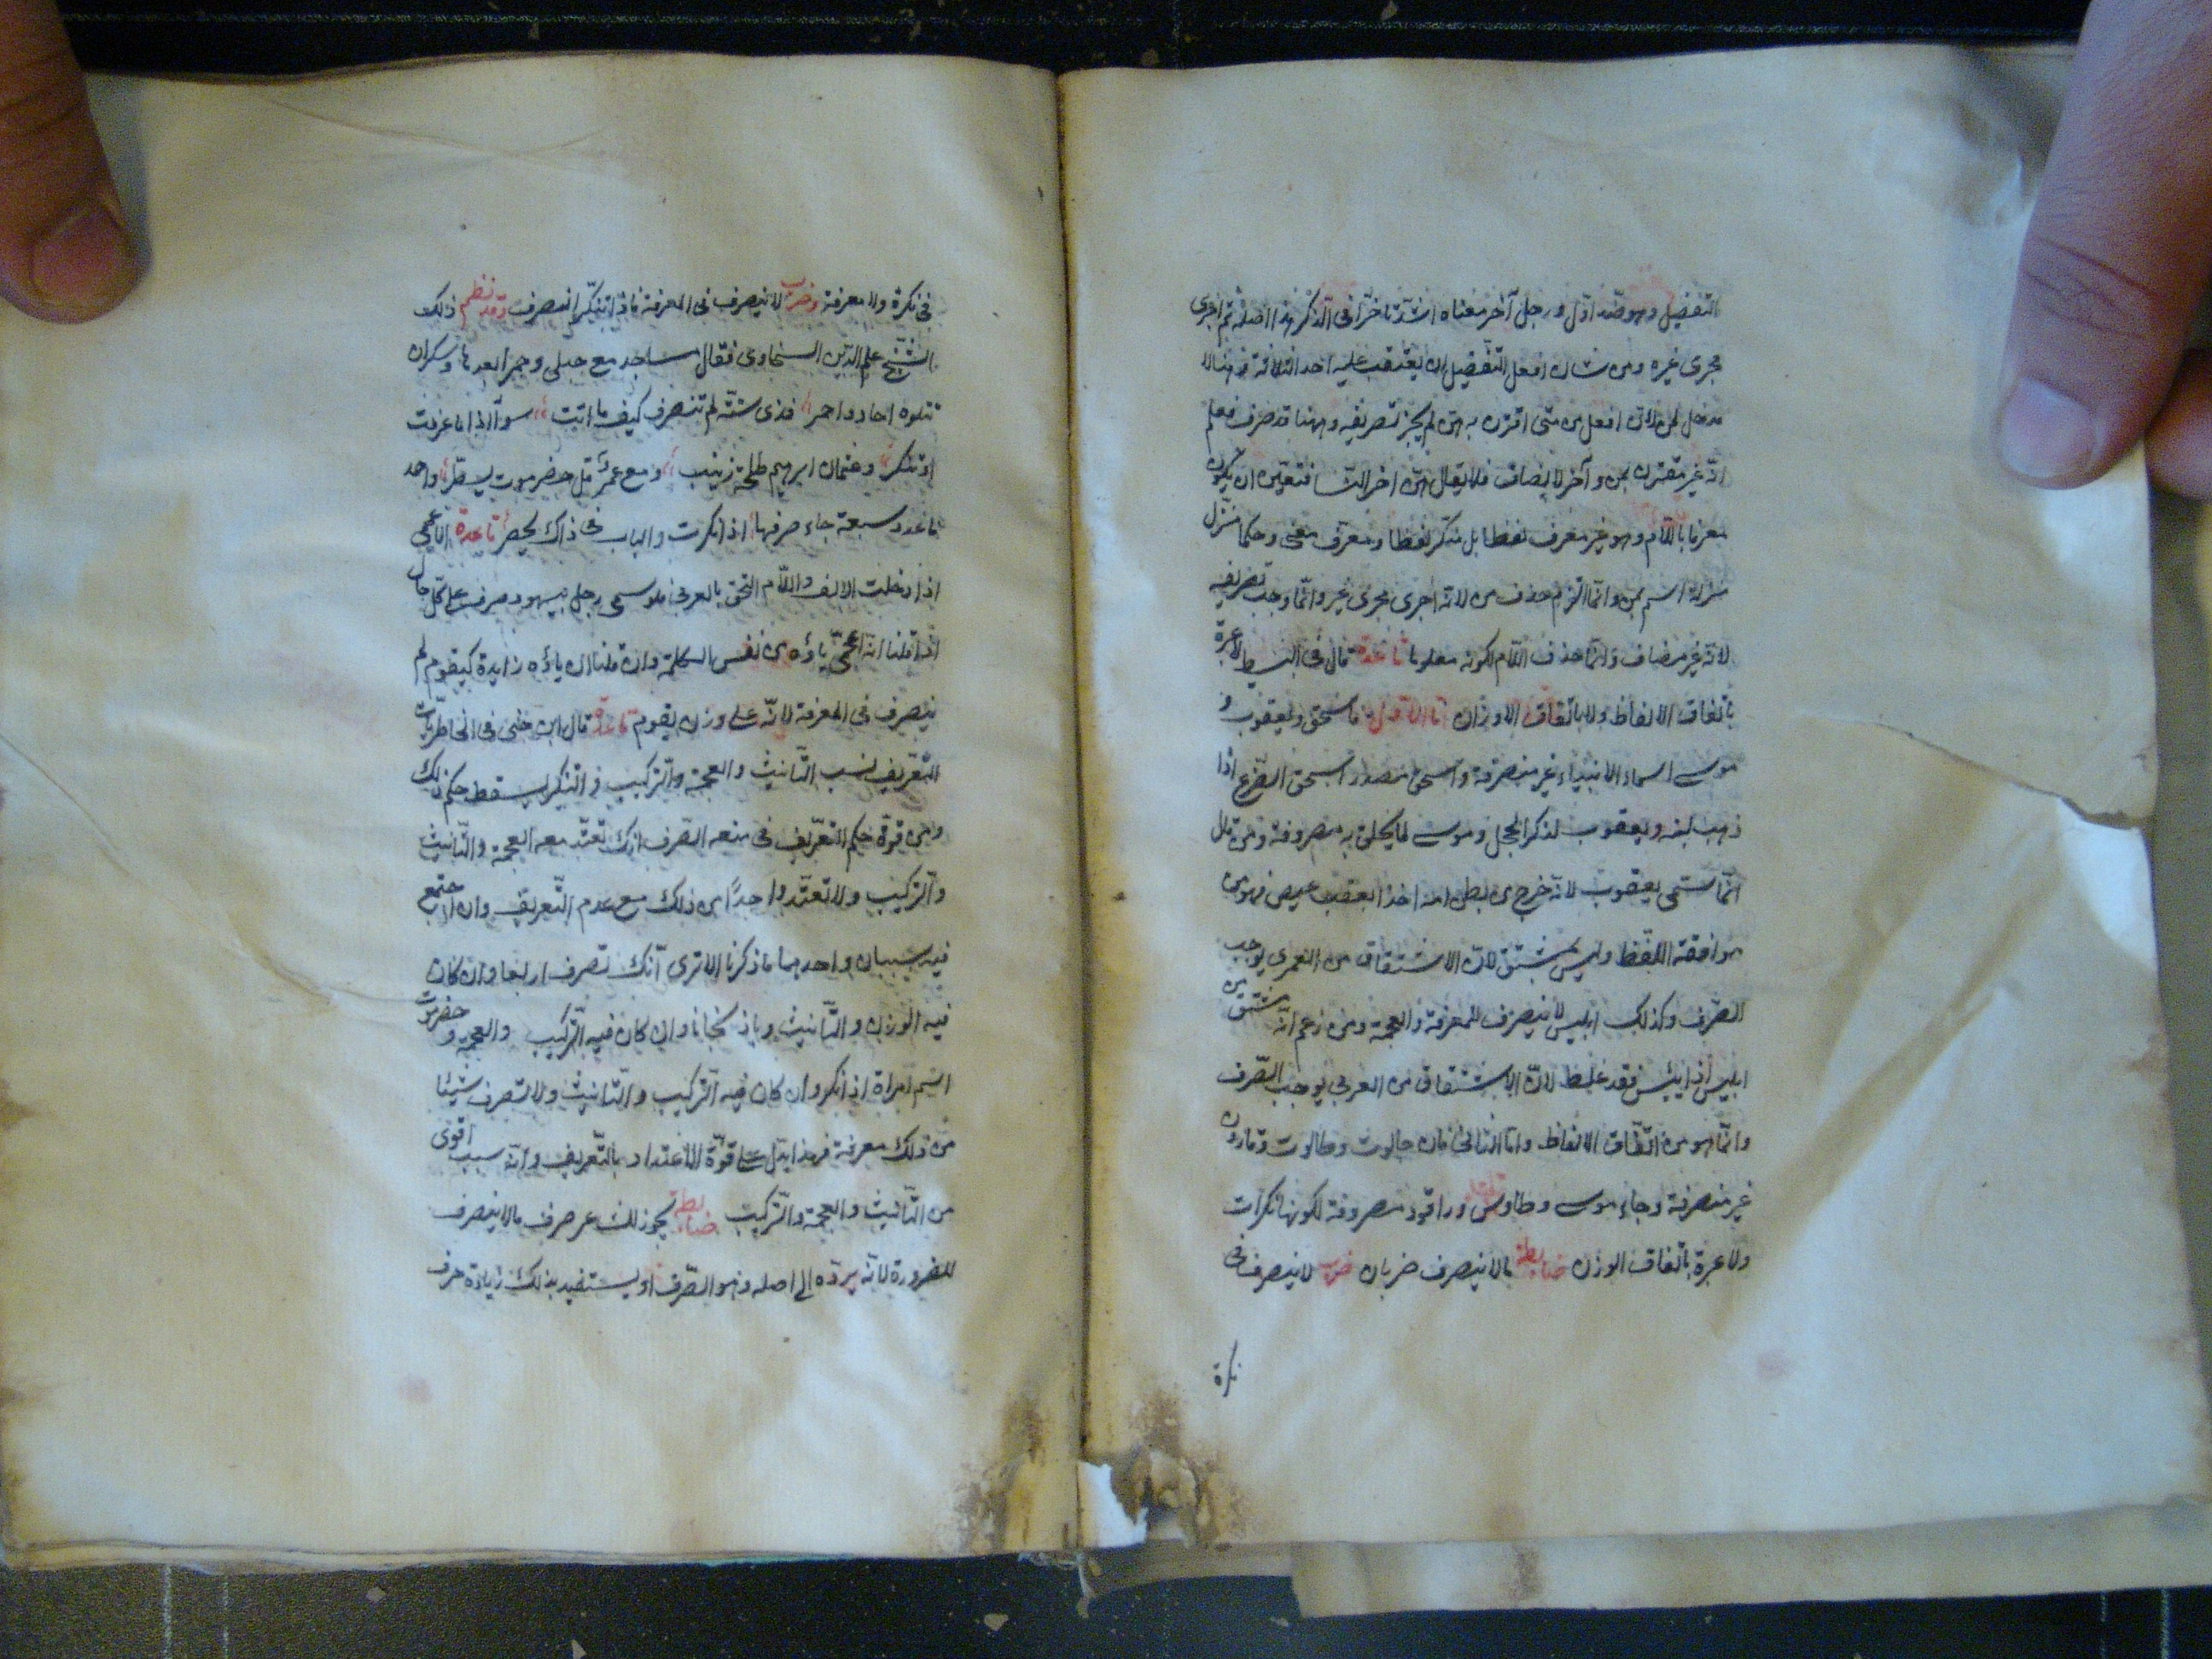 التفضيل وهو ضد اول ورجل آخر معناه اشد تاخرا في الذكر هذا اصله ثم اجرى
مجرى غيره ومن شان افعل التفضيل ان يعتقب عليه احد الثلاثة فهنا لا
مدخل لمن لان افعل من متى اقترن به من لم يجز تصريفه وههنا قد صرف فعلم
انه غير مقترن بمن وآخر لا يضاف فلا يقال هن اخر النسا فتعين ان يكون
معرفا باللام وهو غير معرف لفظا بل منكر لفظا ومعرف معنى وحكما منزل
منزلة اسم بمن وانما التزم حذف من لانه اجرى مجرى غير وانما وجب تصريفه
لانه غير مضاف وانما حذف اللام لكونه معلوما قاعدة قال في البسيط لا عبرة
باتفاق الالفاظ ولا باتفاق الاوزان اما الاول فاسحق ويعقوب و
موسى اسماء الانبياء غير منصرفة واسحق مصدر اسحق الضرع اذا
ذهب لبنه ويعقوب لذكر الحجل وموسى لما يحلق به مصروفة ومن قال
انما سمى يعقوب لانه خرج من بطن امه اخذا بعقب عيص فهو من
موافقة اللفظ وليس بمشتق لان الاشتقاق من العربي يوجب
الصرف وكذلك ابليس لا ينصرف للمعرفة والعجمة ومن زعم انه مشتق من
ابليس اذا يئس فقد غلط لان الاشتقاق من العربي يوجب الصرف
وانما هو من اتفاق الالفاظ واما الثاني فان جالوت وطالوت وقارون
غير منصرفة وجاء موسى وطاوس وراقود مصروفة لكونها نكرات
ولا عبرة باتفاق الوزن ضابطة مالا ينصرف ضربان ضرب لا ينصرف في
نكرة
في نكرة ولا معرفة وضرب لا ينصرف في المعرفة فاذا تنكر انصرف وقد نظم ذلك
الشيخ علم الدين السخاوى فقال مساجد مع حبلى وحمرا بعدها وسكران
تتلوه احاد واحمر فذى ستة لم تنصرف كيف ما اتت سوا اذا ما عرفت
او تنكر وعثمان ابرهيم طلحة زينب ومع عمر قل حضرموت يسطر واحمد
فاعدد سبعة جاء صرفها اذا نكرت والباب في ذاك يحصر قاعدة الاعجمي
اذا دخلت الالف واللام التحق بالعربي فلو سمى رجل بيهود صرف على كل حال
اذا قلنا انه اعجمي ياؤه من نفس الكلمة وان قلنا ان ياؤه زايدة كيقوم لم
ينصرف في المعرفة لانه على وزن يقوم قاعدة قال ابن جنى في الخاطريات
للتعريف بسبب التانيث والعجمة والتركيب والتنكير يسقط حكم ذلك
ومن قوة حكم التعريف في منعه الصرف انك تعتد معه العجمة والتانيث
والتركيب ولا تعتد واحدا من ذلك مع عدم التعريف وان اجتمع
فيه سببان واحدهما ما ذكرنا الا ترى انك تصرف اربعا وان كان
فيه الوزن والتانيث وباذنجانا وان كان فيه التركيب والعجمة وحضرموت
اسم امراة اذا نكر وان كان فيه التركيب والتانيث ولا تصرف شيئا
من ذلك معرفة فهذا يدل على قوة الاعتداد بالتعريف وانه سبب اقوى
من التانيث والعجمة والتركيب ضابطة يجوز للشاعر صرف مالا ينصرف
للضرورة لانه يرده الى اصله وهو الصرف او يستفيد بذلك زيادة حرف